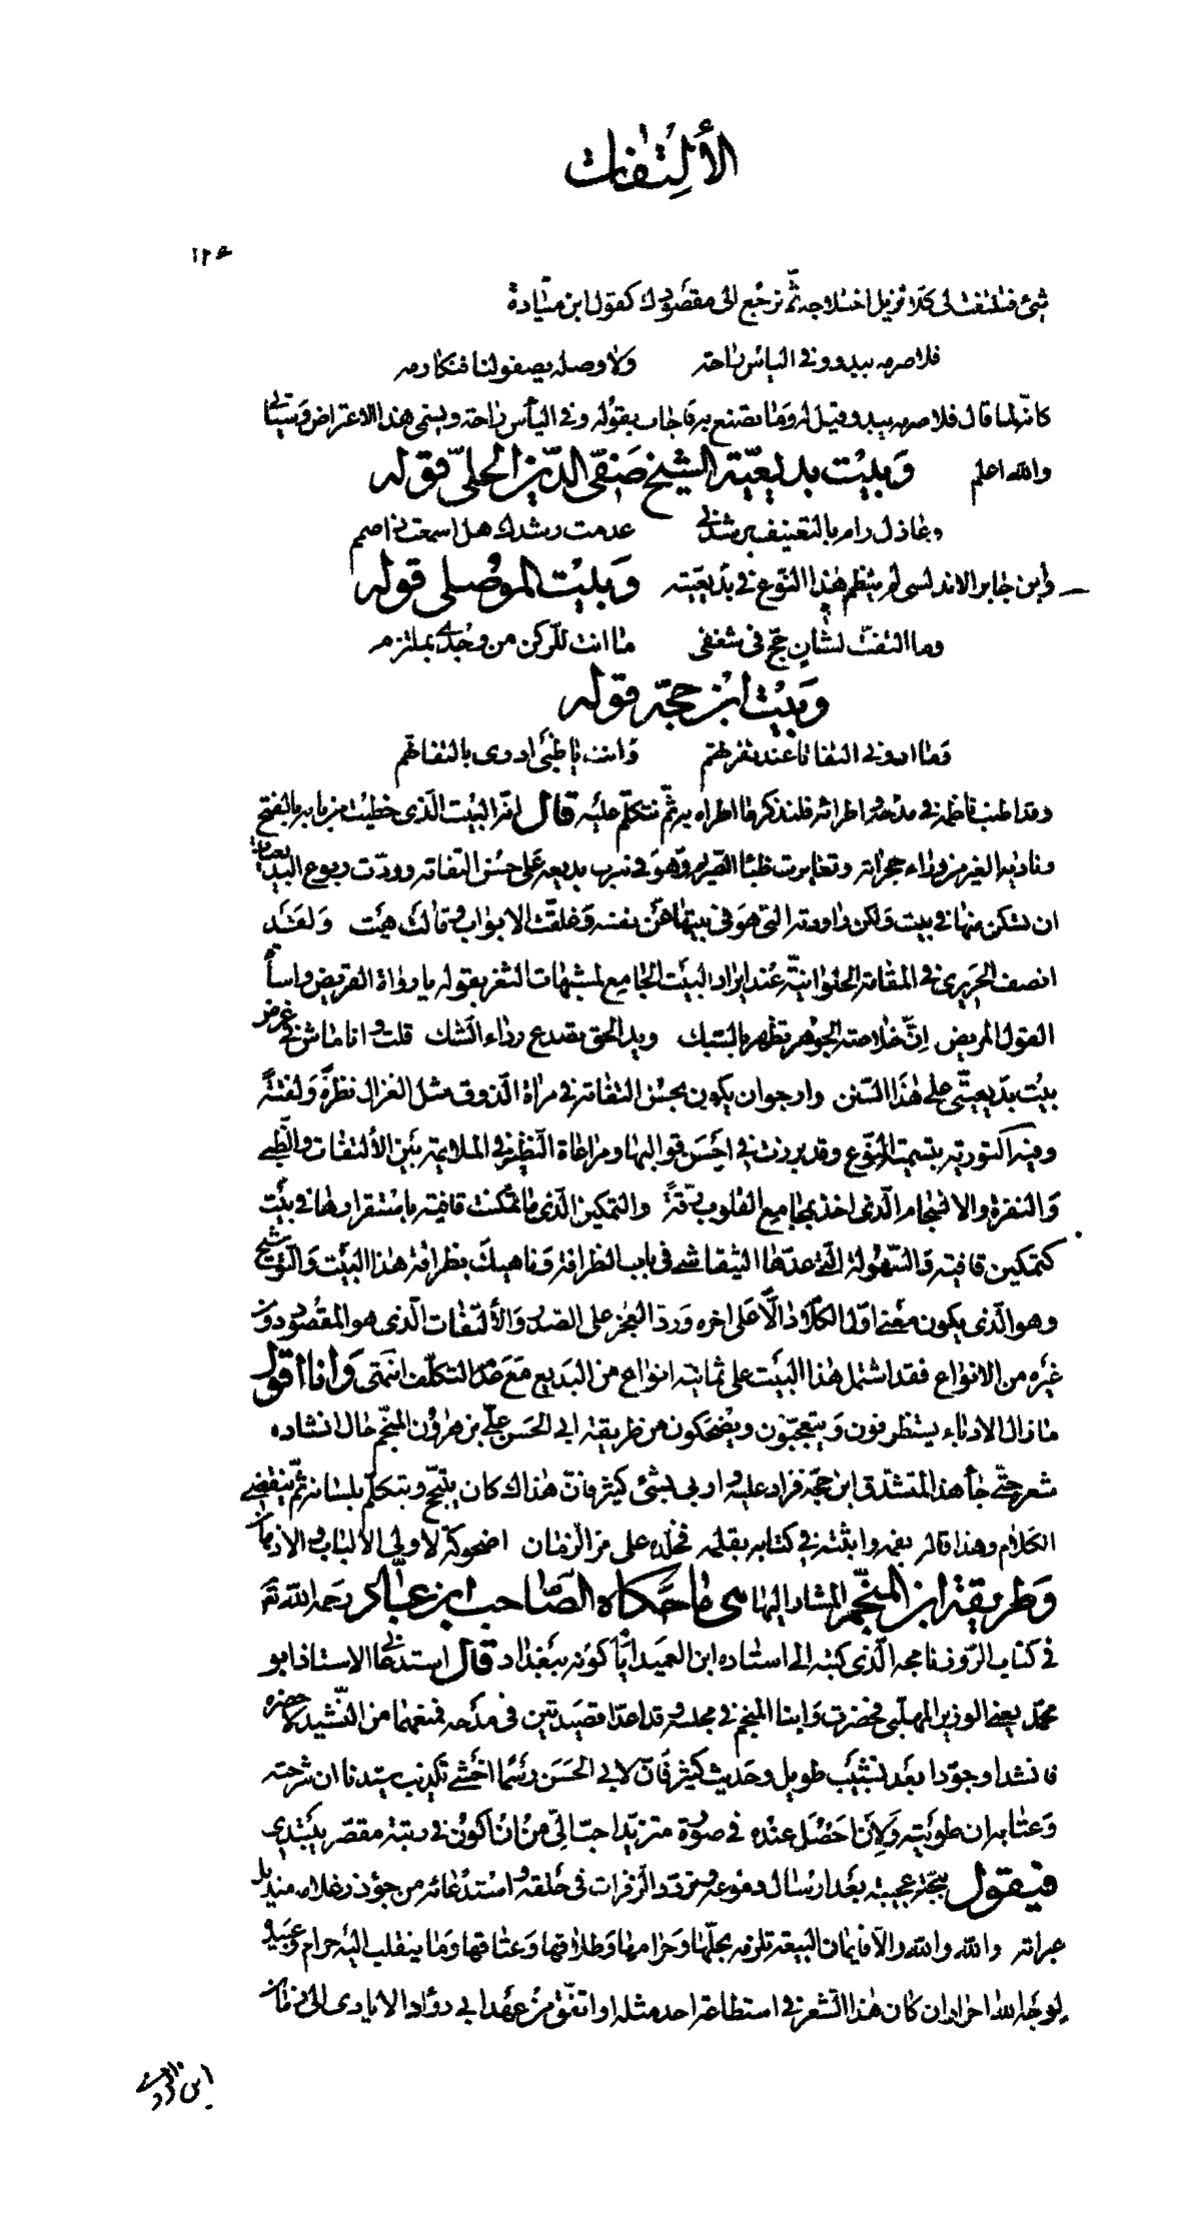 الألتفات
١٢٤
شئ فتلتفت الى كلام تزيل اختلاجه ثم ترجع الى مقصودك كقول ابن ميادة
فلا صرمه يبدو وفى اليأس راحة ولا وصله يصفو لنا فنكارمه
كانه لما قال فلا صرمه يبدو قيل له وما تصنع به فاجاب بقوله وفى اليأس راحة ويسمى هذا الاعتراض وسيأتى
والله اعلم وبيت بديعية الشيخ صفى الدين الحلى قوله
وعاذل رام بالتعنيف يرشدنى عدمت رشدك هل اسمعت ذا صمم
وابن جابر الاندلسى لم ينظم هذا النوع فى بديعيته وبيت الموصلى قوله
وما التفت لشان حج فى شغفى ما انت للركن من وجدى بملتزم
وبيت ابن حجة قوله
وما ارونى التفاتا عند نفرتهم وانت يا ظبى ادرى بالتفاتهم
وقد اطنب ناظمه فى مدحه واطرائه فلنذكر ما اطراه به ثم نتكلم عليه قال ان البيت الذى خطيت من بابه بالفتح
ونادانى الغير من وراء حجراته وتغايرت ظبا الصريم وهو فى سرب بديعه على حسن التفاته وودت ربوع البديعيات
ان تسكن منها فى بيت ولكن راودته التى هو فى بيتها عن نفسه وغلقت الابواب وقالت هيت ولقد
انصف الحريرى فى المقامة الحلوانية عند ايراد البيت الجامع لمشبهات الثغر بقوله يا رواة القريض واساة
القول المريض ان خلاصة الجوهر تظهر بالسبك ويد الحق تصدع رداء الشك قلت وانا ماش فى غرض
بيت بديعيتى على هذا السنن وارجو ان يكون بحسن التفاته فى مرآة الذوق مثل الغزال نظرة ولفتة
وفيه التورية بتسمية النوع وقد برزت فى احسن قوالبها ومراعاة النظير فى الملايمة بين الألتفات والظبى
والنفرة والانسجام الذى اخذ بمجامع القلوب رقة والتمكين الذى ما تمكنت قافية باستقرارها فى بيت
كتمكين قافيته والسهولة التى عدها التيفاشى فى باب الظرافة وناهيك بظرافة هذا البيت والتوشيح
وهو الذى يكون معنى اول الكلام دالا على اخره ورد العجز على الصدر والألتفات الذى هو المقصود دون
غيره من الانواع فقد اشتمل هذا البيت على ثمانية انواع من البديع مع عدم التكلف انتهى وانا اقول
ما زال الادباء يستظرفون ويتعجبون ويضحكون من طريقة ابى الحسن على بن هرون المنجم حال انشاده
شعره حتى جاء هذا المتشدق ابن حجة فزاد عليه واربى بشئ كثير فان هذاك كان يتبجح ويتكلم بلسانه ثم ينقضى
الكلام وهذا قاله بفمه واثبته فى كتابه بقلمه فخلده على مر الزمان اضحوكة لاولى الالباب والاذهان
وطريقة ابن المنجم المشار اليها هى ما حكاه الصاحب ابن عباد رحمه الله تع
فى كتاب الروزنامجه الذى كتبه الى استاده ابن العميد ايام كونه ببغداد قال استدعانى الاستاذ ابو
محمد يعنى الوزير المهلبى فحضرت وابنا المنجم فى مجلسه وقد اعدا قصيدتين فى مدحه فمنعهما من النشيد لاحضره
فانشدا وجودا بعد تشبيب طويل وحديث كثير فان لابى الحسن رسما اخشى تكذيب سيدنا ان شرحته
وعتابه ان طويته ولان احصل عنده فى صورة متزيد احب الى من ان اكون فى رتبة مقصر يبتدى
فيقول ببحة عجيبة بعد ارسال دموعه وتردد الزفرات فى حلقه واستدعائه من جؤذر غلامه منديل
عبراته والله والله والا فايمان البيعة تلزمه بحلها وحرامها وطلاقها وعتاقها وما ينقلب اليه حرام وعبيده
لوجه الله احرار ان كان هذا الشعر فى استطاعة احد مثله او اتفق من عهد ابى دؤاد الايادى الى زمان
ابن الرومى